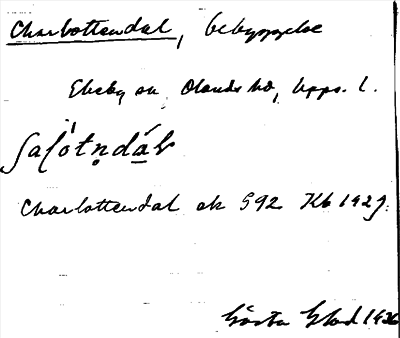 Charlottendal, bebyggelse
Ekeby sn, Olands hd, Upps. l.
Charlottendal ek 592 Kb 1929.
Gösta Glad 1936